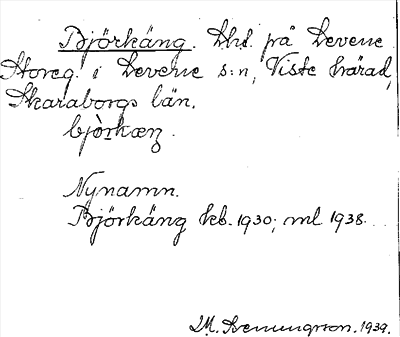 Björkäng. Lht. på Levene
Storeg. i Levene s:n, Viste härad,
Skaraborgs län.
bjòrkæŋ.
Nynamn.
Björkäng kb. 1930; ml 1938.
M. 1939.